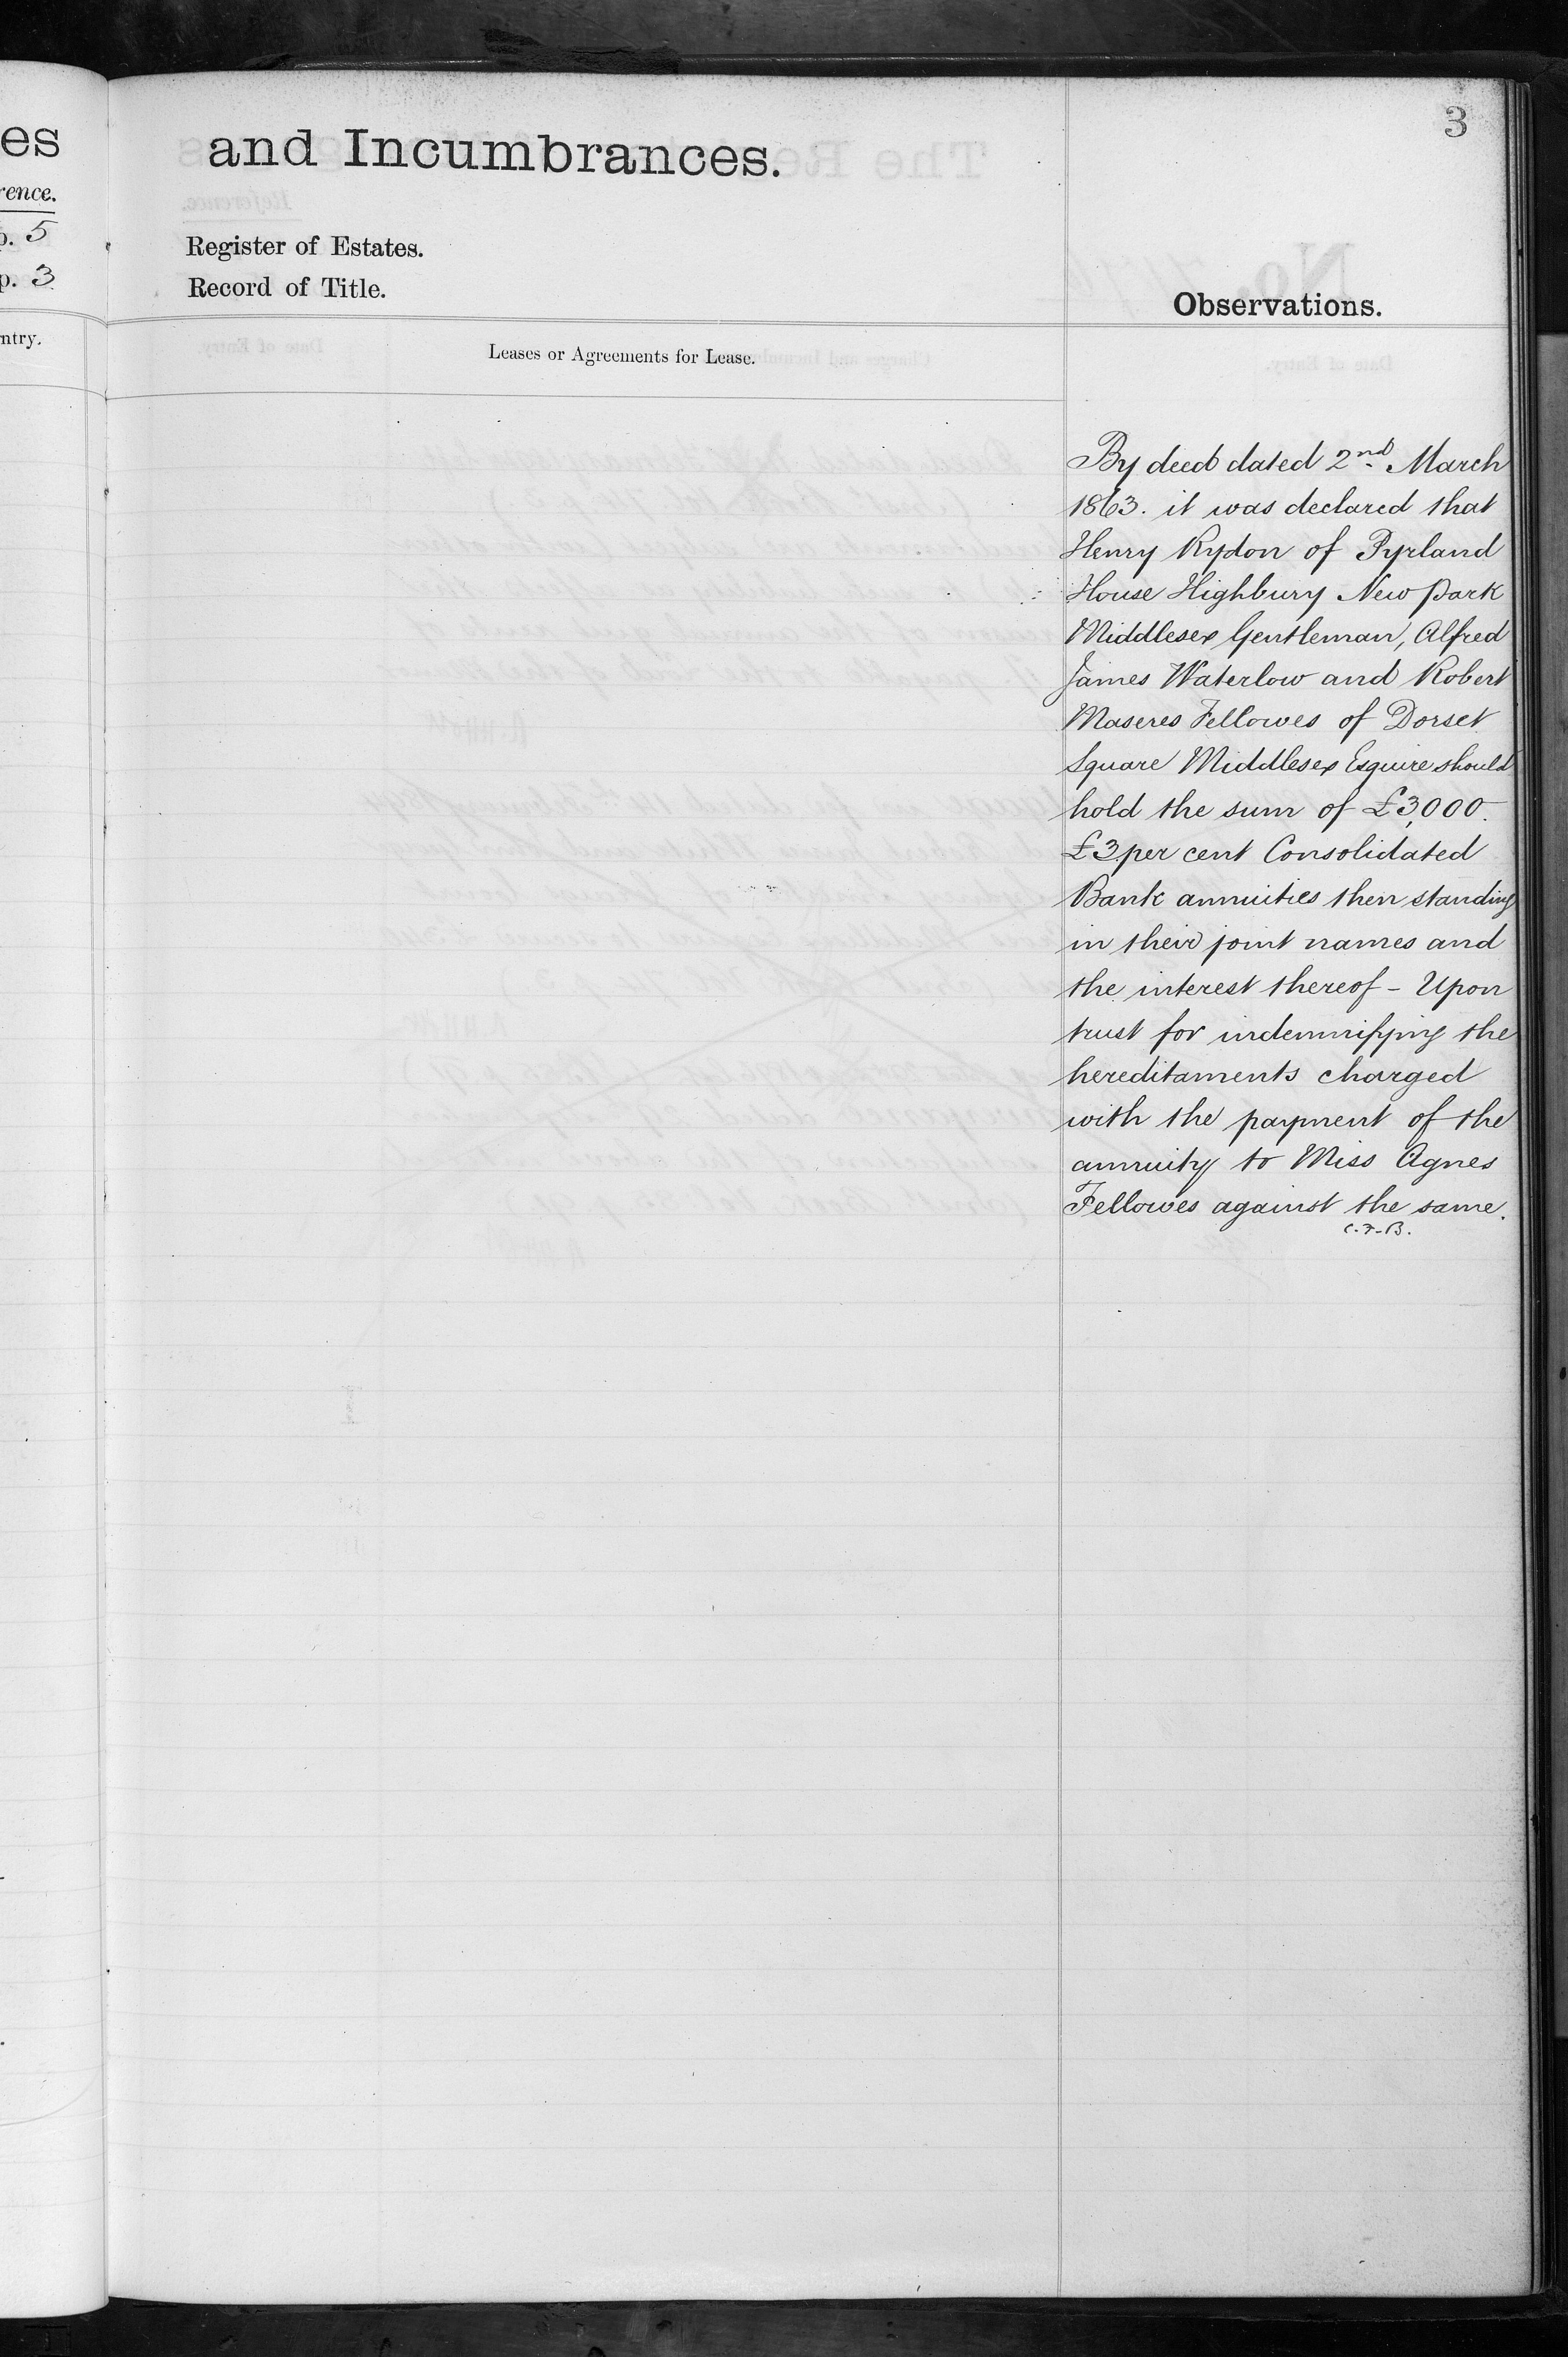 es
rence.
p. 5
p. 3
ntry.
3
and Incumbrances.
Register of Estates.
Record of Title.
Observations.
Leases or Agreements for Lease.
By deed dated 2nd March
1863. it was declared that
Henry Rydon of Pyrland
House Highbury New park
Middlesex Gentleman, Alfred
James Waterlow and Robert
Maseres Fellowes of Dorset
Square Middlesex Esquire should
hold the sum of £3,000.
£3 per cent Consolidated
Bank annuities then standing
in their joint names and
the interest thereof - Upon
trust for indemnifying the
hereditaments charged
with the payment of the
annuity to Miss Agnes
Fellowes against the same.
C.F.B.